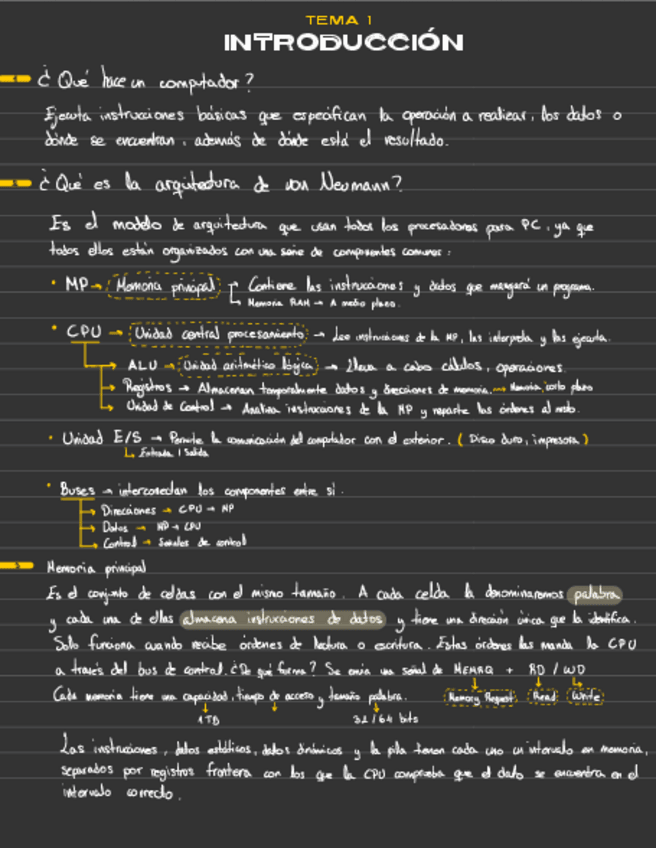 TEMA 1
INTRODUCCIÓN
¿Qué hace un computador?
Ejecuta instrucciones básicas que especifican la operación a realizar, los datos o
dónde se encuentran, además de dónde está el resultado.
¿Qué es la arquitectura de von Neumann?
Es el modelo de arquitectura que usan todos los procesadores para PC, ya que
todos ellos están organizados con una serie de componentes comunes:
· MP → Memoria principal → Contiene las instrucciones y datos que manejará un programa.
→ Memoria RAM → A medio plazo.
· CPU → Unidad central procesamiento → Lee instrucciones de la MP, las interpreta y las ejecuta.
→ ALU → Unidad aritmético lógica → Lleva a cabo cálculos, operaciones.
→ Registros → Almacenan temporalmente datos y direcciones de memoria. → Memoria corto plazo
→ Unidad de Control → Analiza instrucciones de la MP y reparte las órdenes al resto.
· Unidad E/S → Permite la comunicación del computador con el exterior. (Disco duro, impresora)
Entrada / Salida
· Buses → interconectan los componentes entre sí.
→ Direcciones → CPU → MP
→ Datos → MP → CPU
→ Control → Señales de control
Memoria principal
Es el conjunto de celdas con el mismo tamaño. A cada celda la denominaremos palabra
y cada una de ellas almacena instrucciones de datos y tiene una dirección única que la identifica.
Solo funciona cuando recibe órdenes de lectura o escritura. Estas órdenes las manda la CPU
a través del bus de control. ¿De qué forma? Se envía una señal de MEMRQ + RD / WD
Cada memoria tiene una capacidad, tiempo de acceso y tamaño palabra. Memory Request Read Write
1TB 32/64 bits
Las instrucciones, datos estáticos, datos dinámicos y la pila tienen cada uno un intervalo en memoria,
separados por registros frontera con los que la CPU comprueba que el dato se encuentra en el
intervalo correcto.